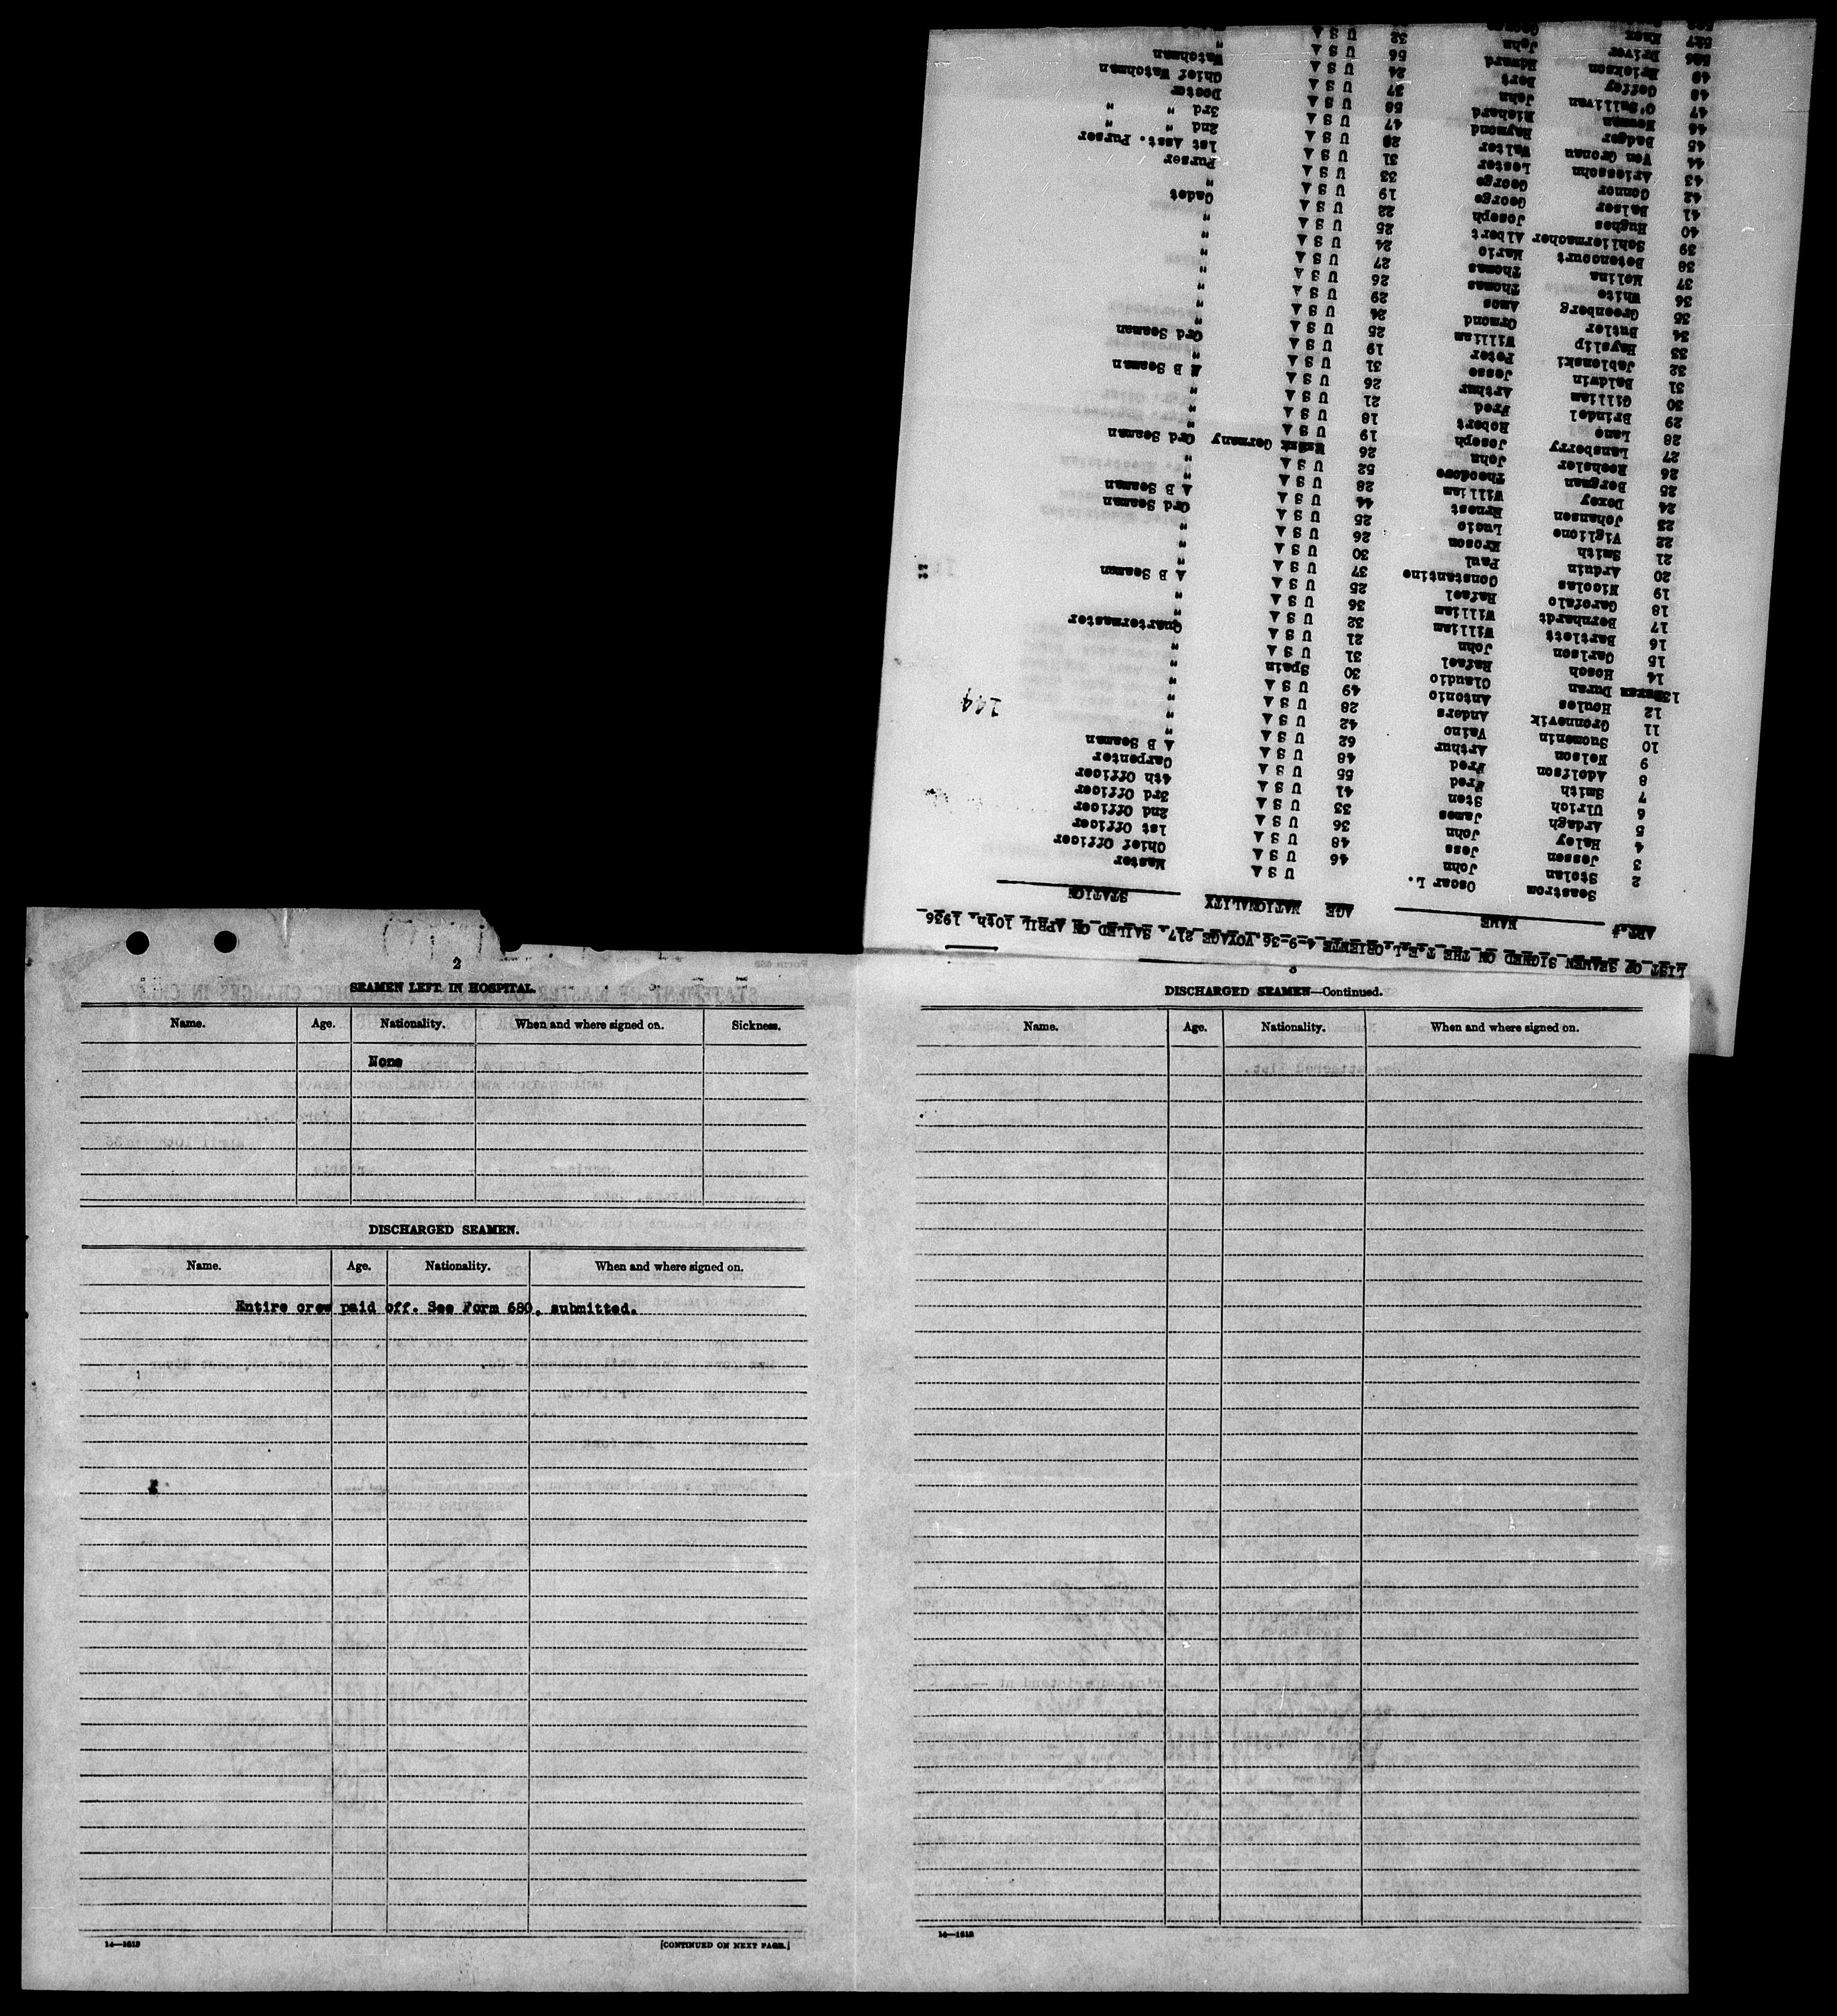 LIST OF SEAMEN SIGNED ON THE T.E.L.ORIENTE 4-9-36. VOYAGE 217. SAILED ON APRIL 10th. 1936
ART.# NAME AGE NATIONALITY STATION
Seastrom Oscar L. U S A Master
2 Stolan John 46 U S A Chief Officer
3 Jessen Jess 48 U S A 1st Officer
4 Haley John 36 U S A 2nd Officer
5 Ardagh James 33 U S A 3rd Officer
6 Ulrich Sten 41 U S A 4th Officer
7 Smith Fred 55 U S A Carpenter
8 Adolfson Fred 48 U S A A B Seaman
9 Nelson Arthur 62 U S A "
10 Suomenin Vaino 42 U S A "
11 Gronnevik Anders 28 U S A "
12 Houles Antonio 49 U S A "
13 Duran Claudio 30 Spain "
14 Hosch Rafael 31 U S A "
15 Carlson John 21 U S A Quartermaster
16 Bartlett William 32 U S A "
17 Bernhardt William 36 U S A "
18 Garofalo Rafael 25 U S A A B Seaman
19 Nicolas Constantine 37 U S A "
20 Arduin Paul 30 U S A "
21 Smith Kroson 26 U S A "
22 Viglione Lucio 25 U S A Ord Seaman
23 Johansen Ernest 44 U S A A B Seaman
24 Doxey William 28 U S A "
25 Bergman Theodore 52 U S A "
26 Roehsler John 26 Germany Ord Seaman
27 Lansberry Joseph 19 U S A "
28 Lane Robert 18 U S A "
29 Brindel Fred 21 U S A "
30 Gilliam Arthur 26 U S A A B Seaman
31 Baldwin Jesse 31 U S A "
32 Jablonski Peter 19 U S A Ord Seaman
33 Hayslip William 25 U S A "
34 Butler Ormond 24 U S A "
35 Greenberg Amos 29 U S A "
36 White Thomas 26 U S A "
37 Molina Thomas 27 U S A "
38 Betencourt Mario 24 U S A "
39 Schliermacher Albert 25 U S A "
40 Hughes Joseph 22 U S A Cadet
41 Balser George 19 U S A "
42 Connor George 33 U S A Purser
43 Ariessohn Lester 31 U S A 1st Asst. Purser
44 Von Gronau Walter 29 U S A 2nd " "
45 Badger Raymond 47 U S A 3rd " "
46 Newman Richard 58 U S A Doctor
47 O'Sullivan John 37 U S A Chief Watchman
48 Geffey Bert 24 U S A Watchman
49 Erickson Edward 56 U S A "
526 Driver John 32 U S A
527 Knox George
144
2
SEAMEN LEFT IN HOSPITAL.
Name. Age. Nationality. When and where signed on. Sickness.
None
DISCHARGED SEAMEN.
Name. Age. Nationality. When and where signed on.
Entire crew paid off. See Form 680, submitted.
14—1613 [CONTINUED ON NEXT PAGE.]
3
DISCHARGED SEAMEN—Continued.
Name. Age. Nationality. When and where signed on.
14—1613